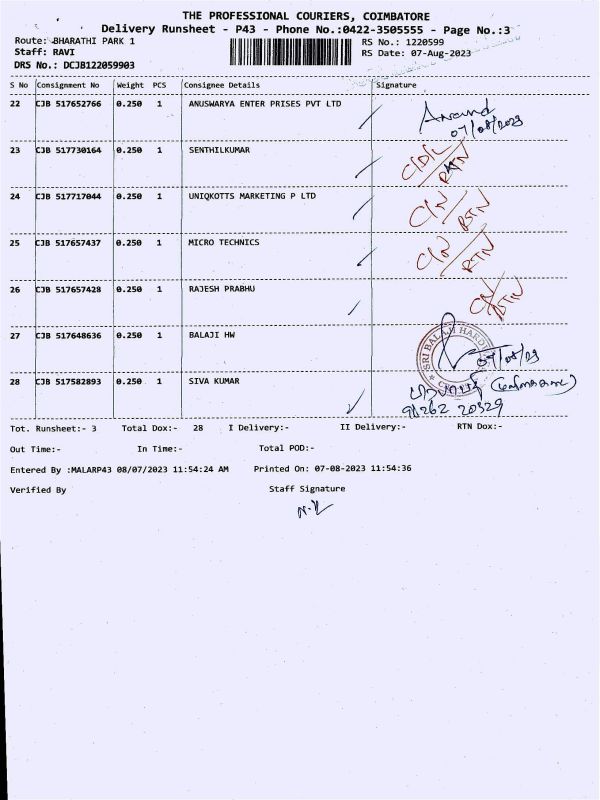 THE PROFESSIONAL COURIERS, COIMBATORE
Delivery Runsheet - P43 - Phone No.:0422-3505555 - Page No.:3
Route: BHARATHI PARK 1 RS No.: 1220599
Staff: RAVI RS Date: 07-Aug-2023
DRS No.: DCJB122059903
S No Consignment No Weight PCS Consignee Details Signature
22 CJB 517652766 0.250 1 ANUSWARYA ENTER PRISES PVT LTD Anand
07/08/2023
23 CJB 517730164 0.250 1 SENTHILKUMAR C/D/L
RTN
24 CJB 517717044 0.250 1 UNIQKOTTS MARKETING P LTD C/N
RTN
25 CJB 517657437 0.250 1 MICRO TECHNICS C/N
RTN
26 CJB 517657428 0.250 1 RAJESH PRABHU
RTN
27 CJB 517648636 0.250 1 BALAJI HW SRI BALAJI HARDW
07/08/23
28 CJB 517582893 0.250 1 SIVA KUMAR
98262 20329
Tot. Runsheet:- 3 Total Dox:- 28 I Delivery:- II Delivery:- RTN Dox:-
Out Time:- In Time:- Total POD:-
Entered By :MALARP43 08/07/2023 11:54:24 AM Printed On: 07-08-2023 11:54:36
Verified By Staff Signature